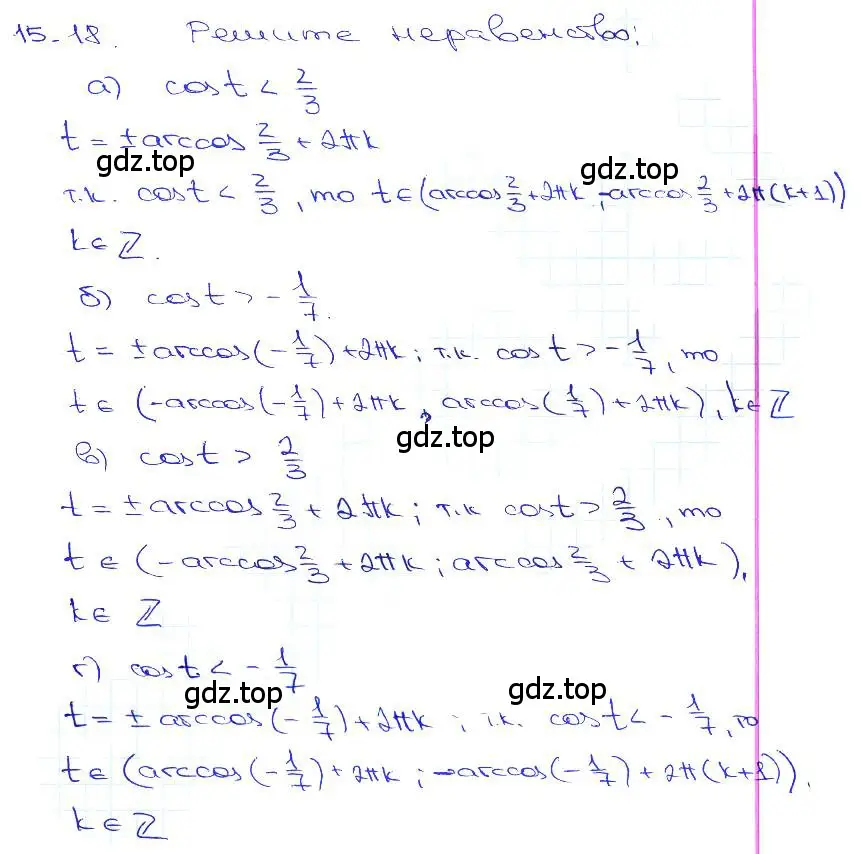 15-18. Решите неравенство:
а) cos t < 2/3
t = ± arccos 2/3 + 2πk
gdz.top gdz.top
т.к. cos t < 2/3, то t ∈ (arccos 2/3 + 2πk; -arccos 2/3 + 2π(k+1))
k ∈ ℤ.
б) cos t > - 1/7.
t = ± arccos(- 1/7) + 2πk; т.к. cos t > - 1/7, то
t ∈ (-arccos(- 1/7) + 2πk, arccos( 1/7) + 2πk), k ∈ ℤ
gdz.top
в) cos t > 2/3
t = ± arccos 2/3 + 2πk; т.к cos t > 2/3, то
t ∈ (-arccos 2/3 + 2πk; arccos 2/3 + 2πk),
k ∈ ℤ
г) cos t < - 1/7
gdz.top gdz.top
t = ± arccos(- 1/7) + 2πk; т.к. cos t < - 1/7, то
t ∈ (arccos(- 1/7) + 2πk; -arccos(- 1/7) + 2π(k+1)).
k ∈ ℤ